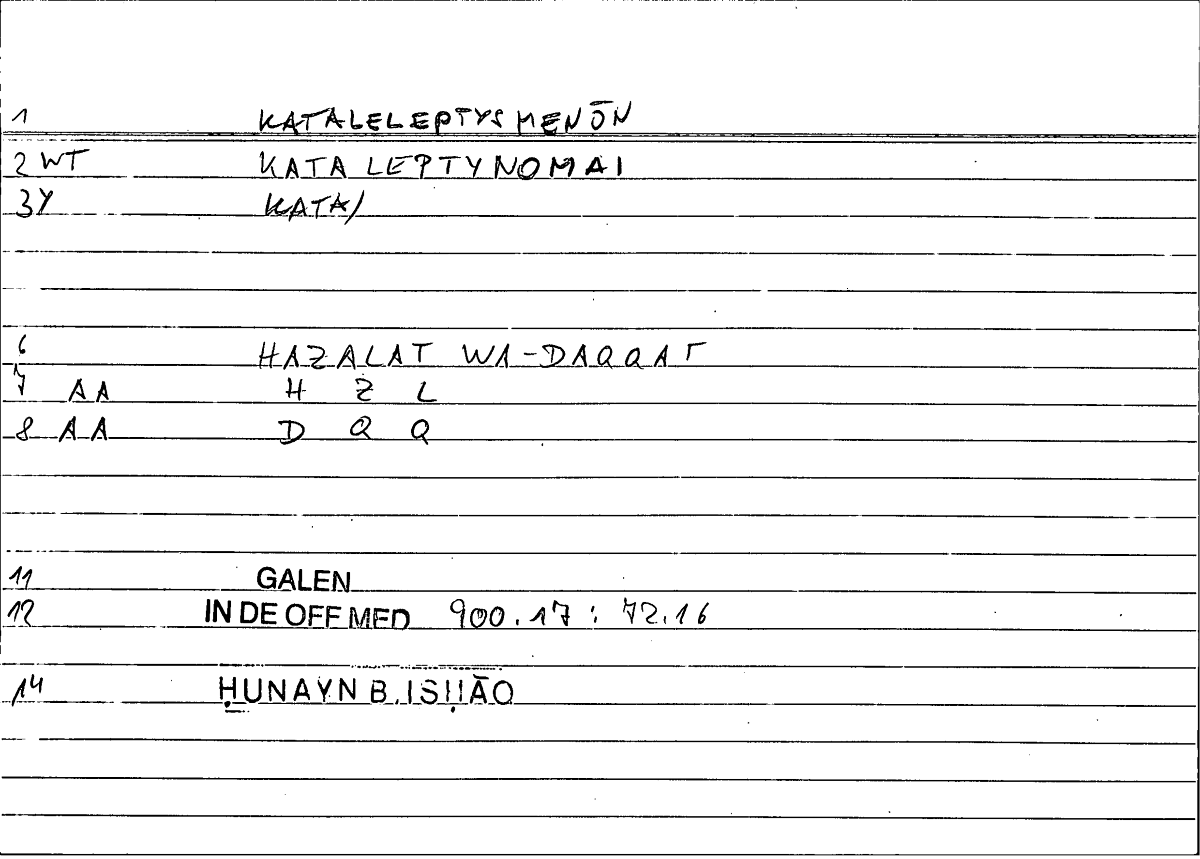 1 KATALELEPTYSMENŌN
2 WT KATALEPTYNOMAI
3Y KATA/
6 HAZALAT WA-DAQQAT
7 AA H Z L
8 AA D Q Q
11 GALEN
12 IN DE OFF MED 900.17 : 72.16
14 ḤUNAYN B. ISḤĀQ